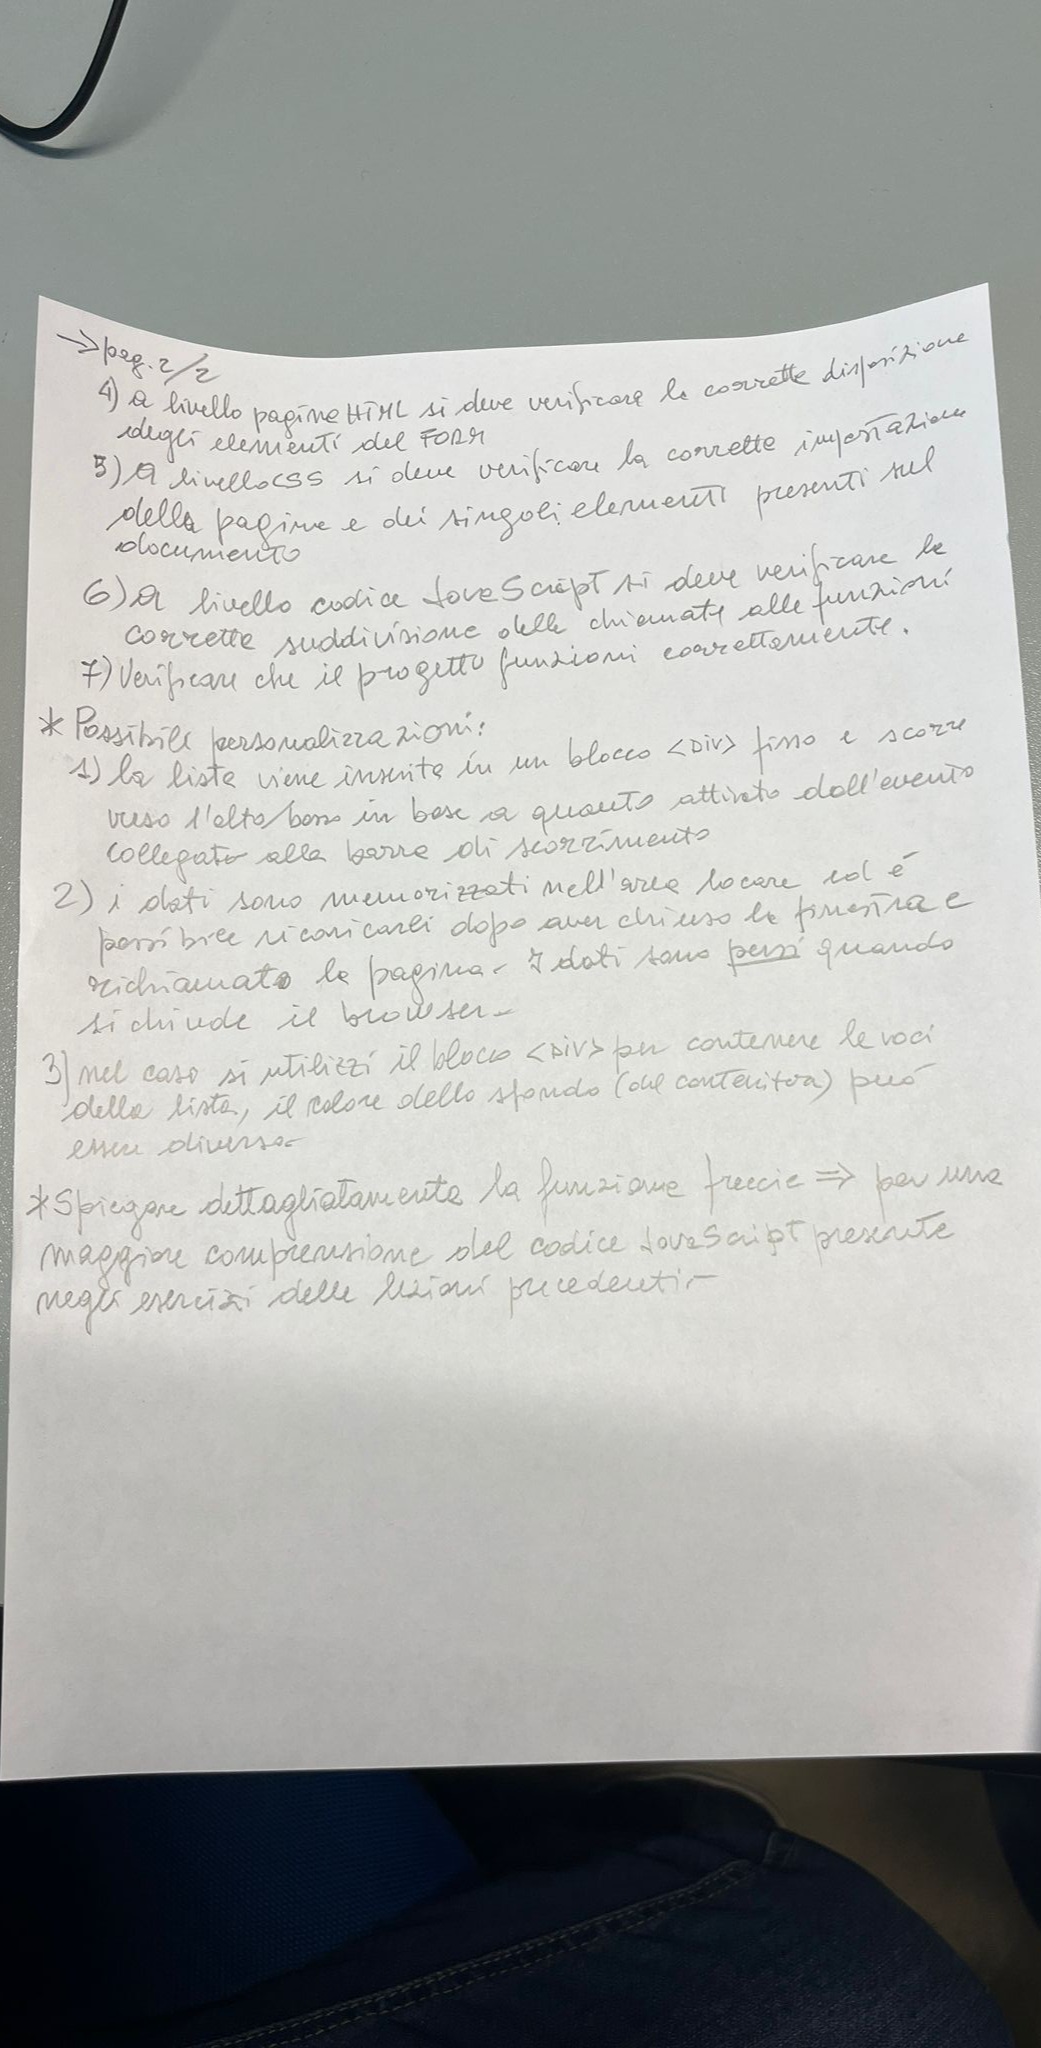 → pag. 2/2
4) a livello pagina HTML si deve verificare la corretta disposizione
degli elementi del FORM
5) A livello CSS si deve verificare la corretta impostazione
della pagina e dei singoli elementi presenti sul
documento
6) A livello codice JavaScript si deve verificare la
corretta suddivisione delle chiamate alle funzioni
7) Verificare che il progetto funzioni correttamente.
* Possibili personalizzazioni:
1) la lista viene inserita in un blocco <DIV> fisso e scorre
verso l'alto/basso in base a quanto attivato dall'evento
collegato alla barra di scorrimento
2) i dati sono memorizzati nell'area locare ed é
possibile ricaricarli dopo aver chiuso la finestra e
richiamato la pagina - I dati sono persi quando
si chiude il browser -
3) nel caso si utilizzi il blocco <DIV> per contenere le voci
della lista, il colore dello sfondo (del contenitore) puó
essere diverso -
* Spiegare dettagliatamente la funzione freccie => per una
maggiore comprensione del codice JavaScript presente
negli esercizi delle lezioni precedenti -